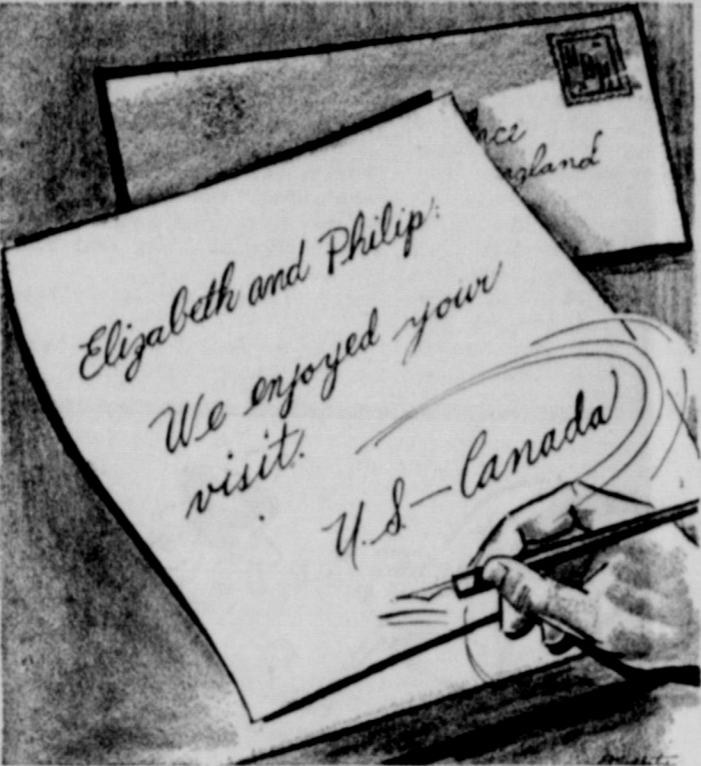 nce
ngland
Elizabeth and Philip:
We enjoyed your
visit.
U.S.—Canada